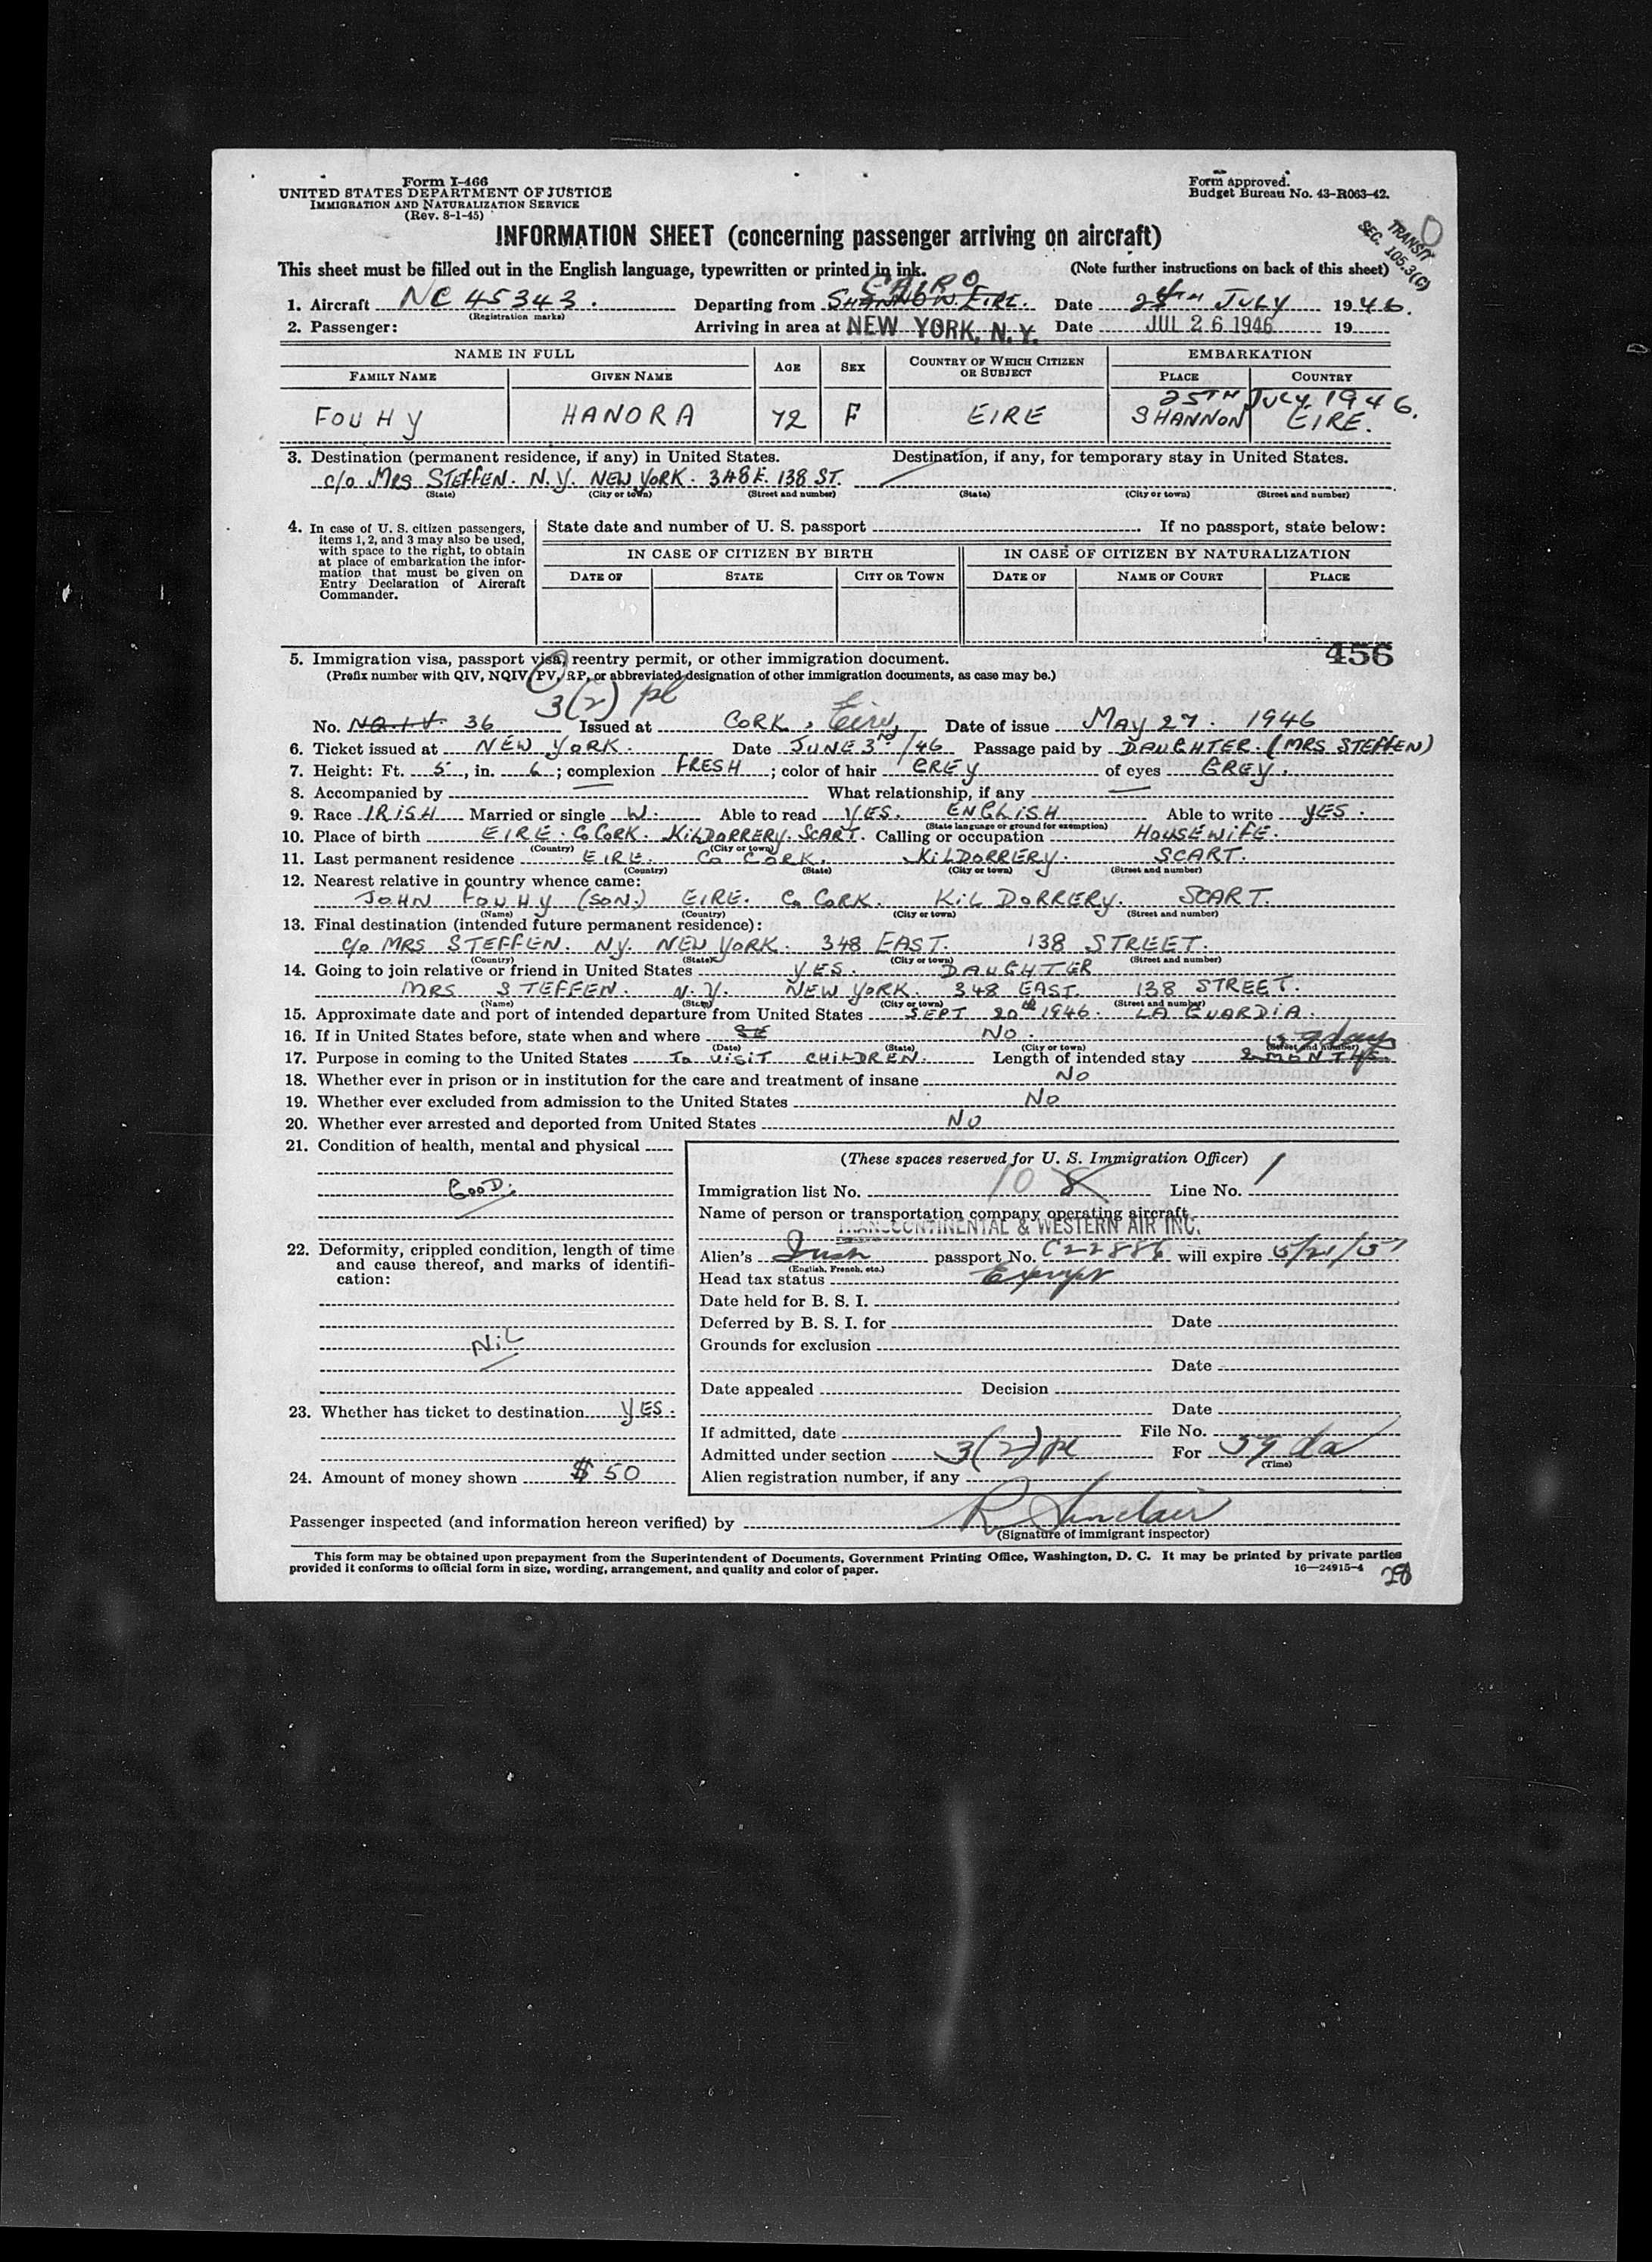 Form I-466
UNITED STATES DEPARTMENT OF JUSTICE
IMMIGRATION AND NATURALIZATION SERVICE
(Rev. 8-1-45)
Form approved.
Budget Bureau No. 43-R063-42.
TRANSIT
SEC. 105.3(C)
INFORMATION SHEET (concerning passenger arriving on aircraft)
This sheet must be filled out in the English language, typewritten or printed in ink. (Note further instructions on back of this sheet)
CAIRO
1. Aircraft NC 45343. Departing from SHANNON. EIRE. Date 24TH JULY 1946.
(Registration marks)
2. Passenger: Arriving in area at NEW YORK, N. Y. Date JUL 26 1946 19
NAME IN FULL AGE SEX COUNTRY OF WHICH CITIZEN OR SUBJECT EMBARKATION
FAMILY NAME GIVEN NAME PLACE COUNTRY
25TH JULY 1946.
FOUHY HANORA 72 F EIRE SHANNON EIRE.
3. Destination (permanent residence, if any) in United States. Destination, if any, for temporary stay in United States.
c/o MRS STEFFEN. N.Y. NEW YORK. 348 E. 138 ST.
(State) (City or town) (Street and number) (State) (City or town) (Street and number)
4. In case of U. S. citizen passengers, items 1, 2, and 3 may also be used, with space to the right, to obtain at place of embarkation the information that must be given on Entry Declaration of Aircraft Commander.
State date and number of U. S. passport If no passport, state below:
IN CASE OF CITIZEN BY BIRTH IN CASE OF CITIZEN BY NATURALIZATION
DATE OF STATE CITY OR TOWN DATE OF NAME OF COURT PLACE
456
5. Immigration visa, passport visa, reentry permit, or other immigration document.
(Prefix number with QIV, NQIV, PV, RP, or abbreviated designation of other immigration documents, as case may be.)
3(2) pl
No. NQ.I.V. 36 Issued at CORK, Eire Date of issue MAY 27. 1946
6. Ticket issued at NEW YORK. Date JUNE 3rd/46 Passage paid by DAUGHTER. (MRS STEFFEN)
7. Height: Ft. 5, in. 6; complexion FRESH; color of hair GREY of eyes GREY.
8. Accompanied by — What relationship, if any —
9. Race IRISH Married or single W. Able to read YES. ENGLISH Able to write YES.
(State language or ground for exemption)
10. Place of birth EIRE. Co CORK. KILDORRERY. SCART. Calling or occupation HOUSEWIFE.
(Country) (City or town)
11. Last permanent residence EIRE. Co CORK. KILDORRERY. SCART.
(Country) (State) (City or town) (Street and number)
12. Nearest relative in country whence came:
JOHN FOUHY (SON) EIRE. Co CORK. KILDORRERY. SCART.
(Name) (Country) (City or town) (Street and number)
13. Final destination (intended future permanent residence):
c/o MRS STEFFEN. NY. NEW YORK. 348 EAST. 138 STREET.
(Country) (State) (City or town) (Street and number)
14. Going to join relative or friend in United States YES. DAUGHTER
MRS STEFFEN. N.Y. NEW YORK. 348 EAST. 138 STREET.
(Name) (State) (City or town) (Street and number)
15. Approximate date and port of intended departure from United States SEPT 20th 1946. LA GUARDIA.
16. If in United States before, state when and where NO.
(Date) (State) (City or town) (Street and number)
59 days
17. Purpose in coming to the United States TO VISIT CHILDREN. Length of intended stay 2 MONTHS
18. Whether ever in prison or in institution for the care and treatment of insane NO
19. Whether ever excluded from admission to the United States NO
20. Whether ever arrested and deported from United States NO
21. Condition of health, mental and physical
GOOD.
22. Deformity, crippled condition, length of time and cause thereof, and marks of identification:
NIL
23. Whether has ticket to destination YES.
24. Amount of money shown $ 50
(These spaces reserved for U. S. Immigration Officer)
Immigration list No. 10 8 Line No. 1
Name of person or transportation company operating aircraft
TRANSCONTINENTAL & WESTERN AIR INC.
Alien's Irish passport No. C22886 will expire 5/21/51
(English, French, etc.)
Head tax status Exempt
Date held for B. S. I.
Deferred by B. S. I. for Date
Grounds for exclusion
Date
Date appealed Decision
Date
If admitted, date File No.
Admitted under section 3(2) pl For 59 da
(Time)
Alien registration number, if any
Passenger inspected (and information hereon verified) by R Sinclair
(Signature of immigrant inspector)
This form may be obtained upon prepayment from the Superintendent of Documents, Government Printing Office, Washington, D. C. It may be printed by private parties
provided it conforms to official form in size, wording, arrangement, and quality and color of paper. 16—24915-4